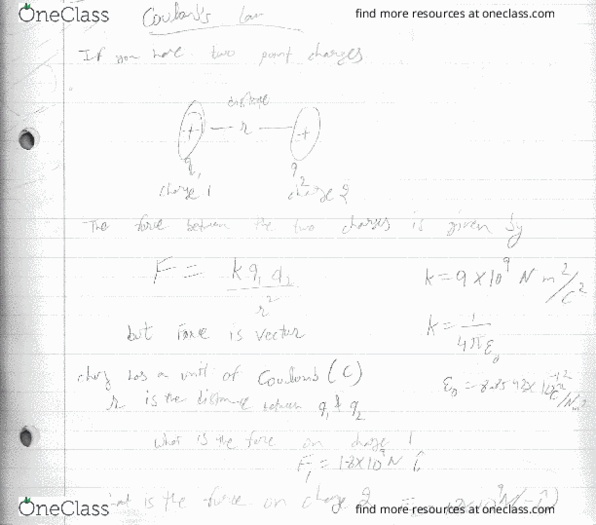 OneClass
find more resources at oneclass.com
Coulomb's law
If you have two point charges
distance
+ — r — +
q1 q2
charge 1 charge 2
The force between the two charges is given by
F = k q1 q2 / r^2
k = 9 x 10^9 N m^2/C^2
but force is vector
k = 1 / 4πε0
charg has a unit of Coulomb (C)
r is the distance between q1 & q2
what is the force on charge 1
F1 = 1.8x10^9 N î
is the force on charge 2
OneClass
find more resources at oneclass.com